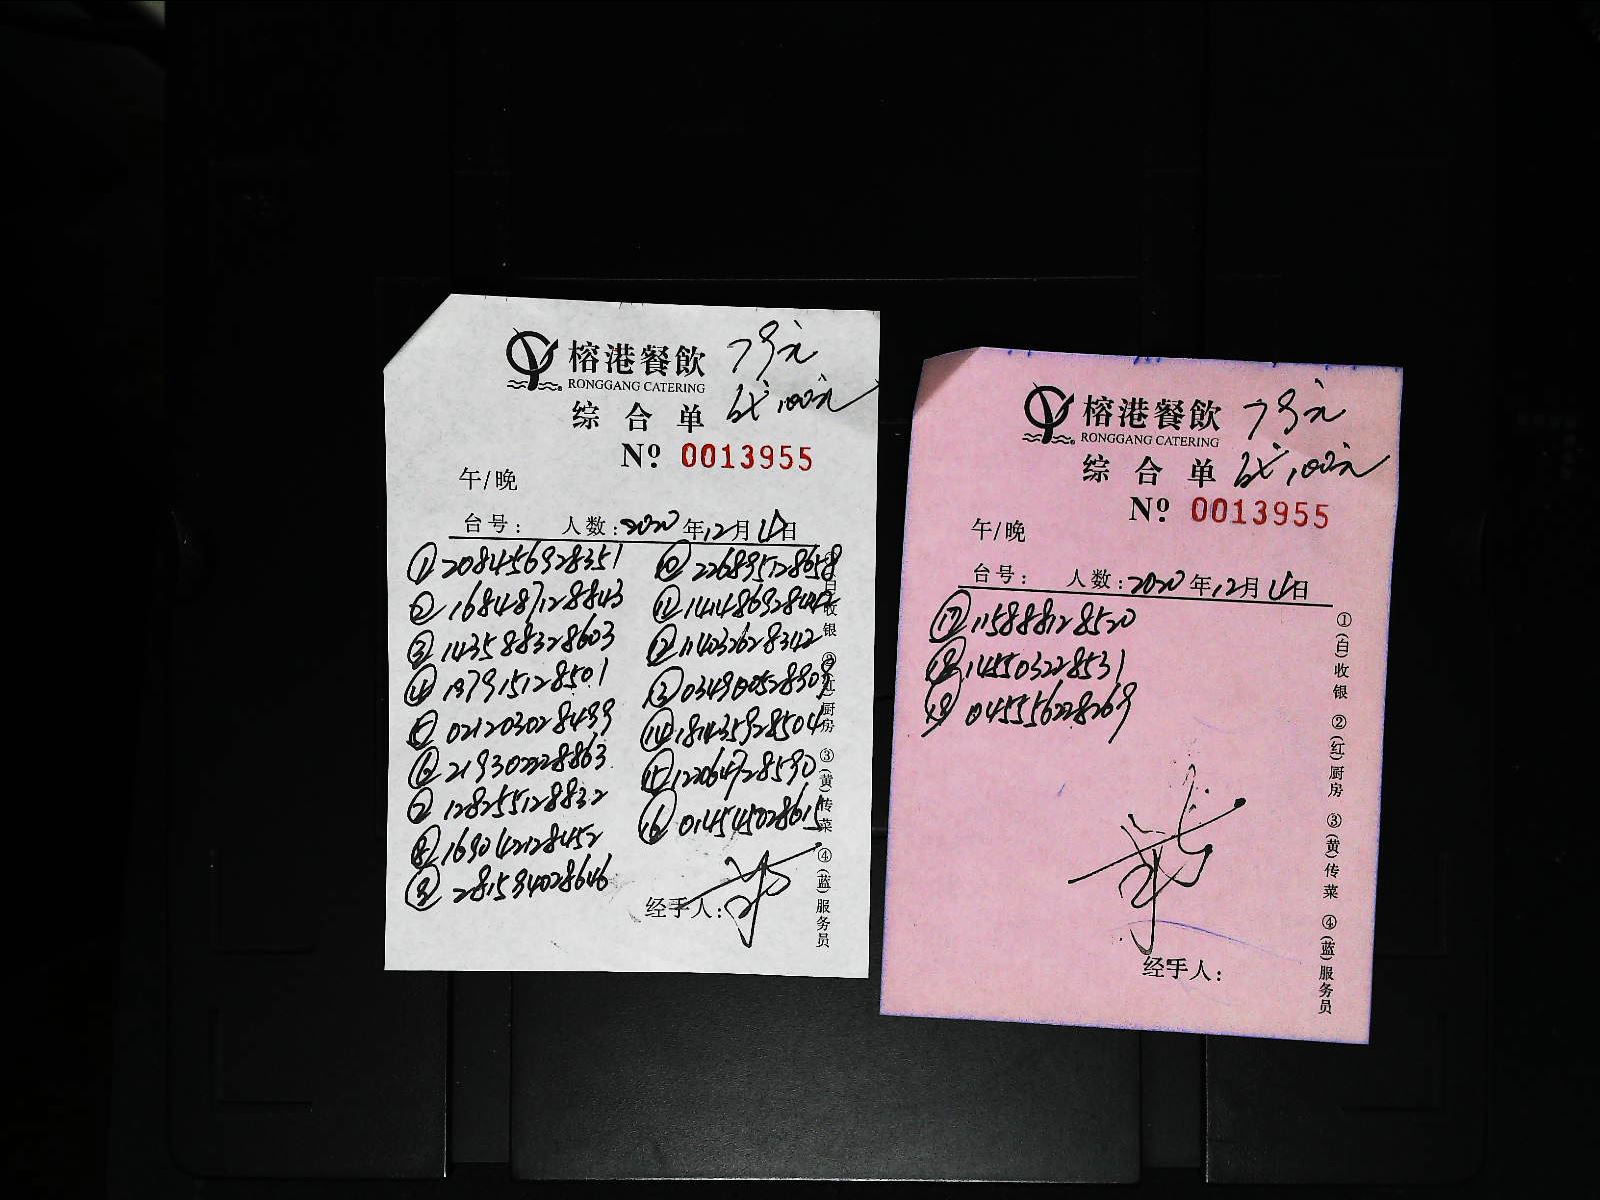 榕港餐飲
RONGGANG CATERING
综合单
Nº 0013955
午/晚
台号: 人数: 2020年12月14日
① 208456928351
② 168487128843
③ 143588328603
④ 187915128501
⑤ 021203028499
⑥ 219302228863
⑦ 128255128832
⑧ 169042128452
⑨ 281594028646
⑩ 226895128658
⑪ 141486928442
⑫ 114032628342
⑬ 034900528909
⑭ 181435928504
⑮ 122064728590
⑯ 014545028615
经手人:
①(白)收银 ②(红)厨房 ③(黄)传菜 ④(蓝)服务员
榕港餐飲
RONGGANG CATERING
综合单
Nº 0013955
午/晚
台号: 人数: 2020年12月14日
⑰ 115888128520
⑱ 145503228531
⑲ 045556228269
经手人:
①(白)收银 ②(红)厨房 ③(黄)传菜 ④(蓝)服务员